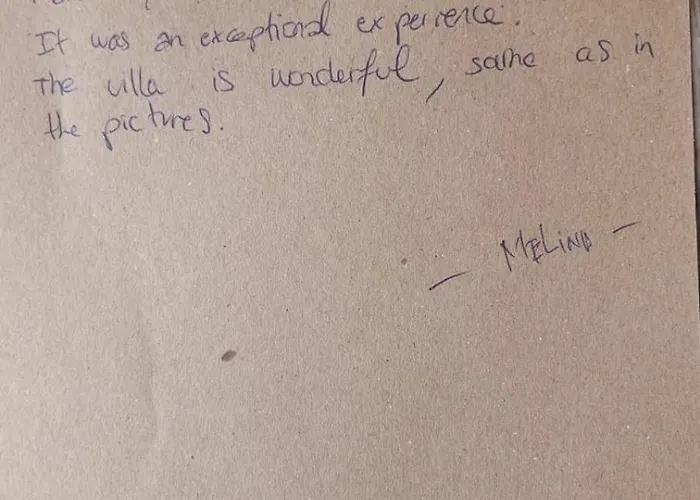 It was an exceptional experience.
The villa is wonderful, same as in
the pictures.
— MELINA —